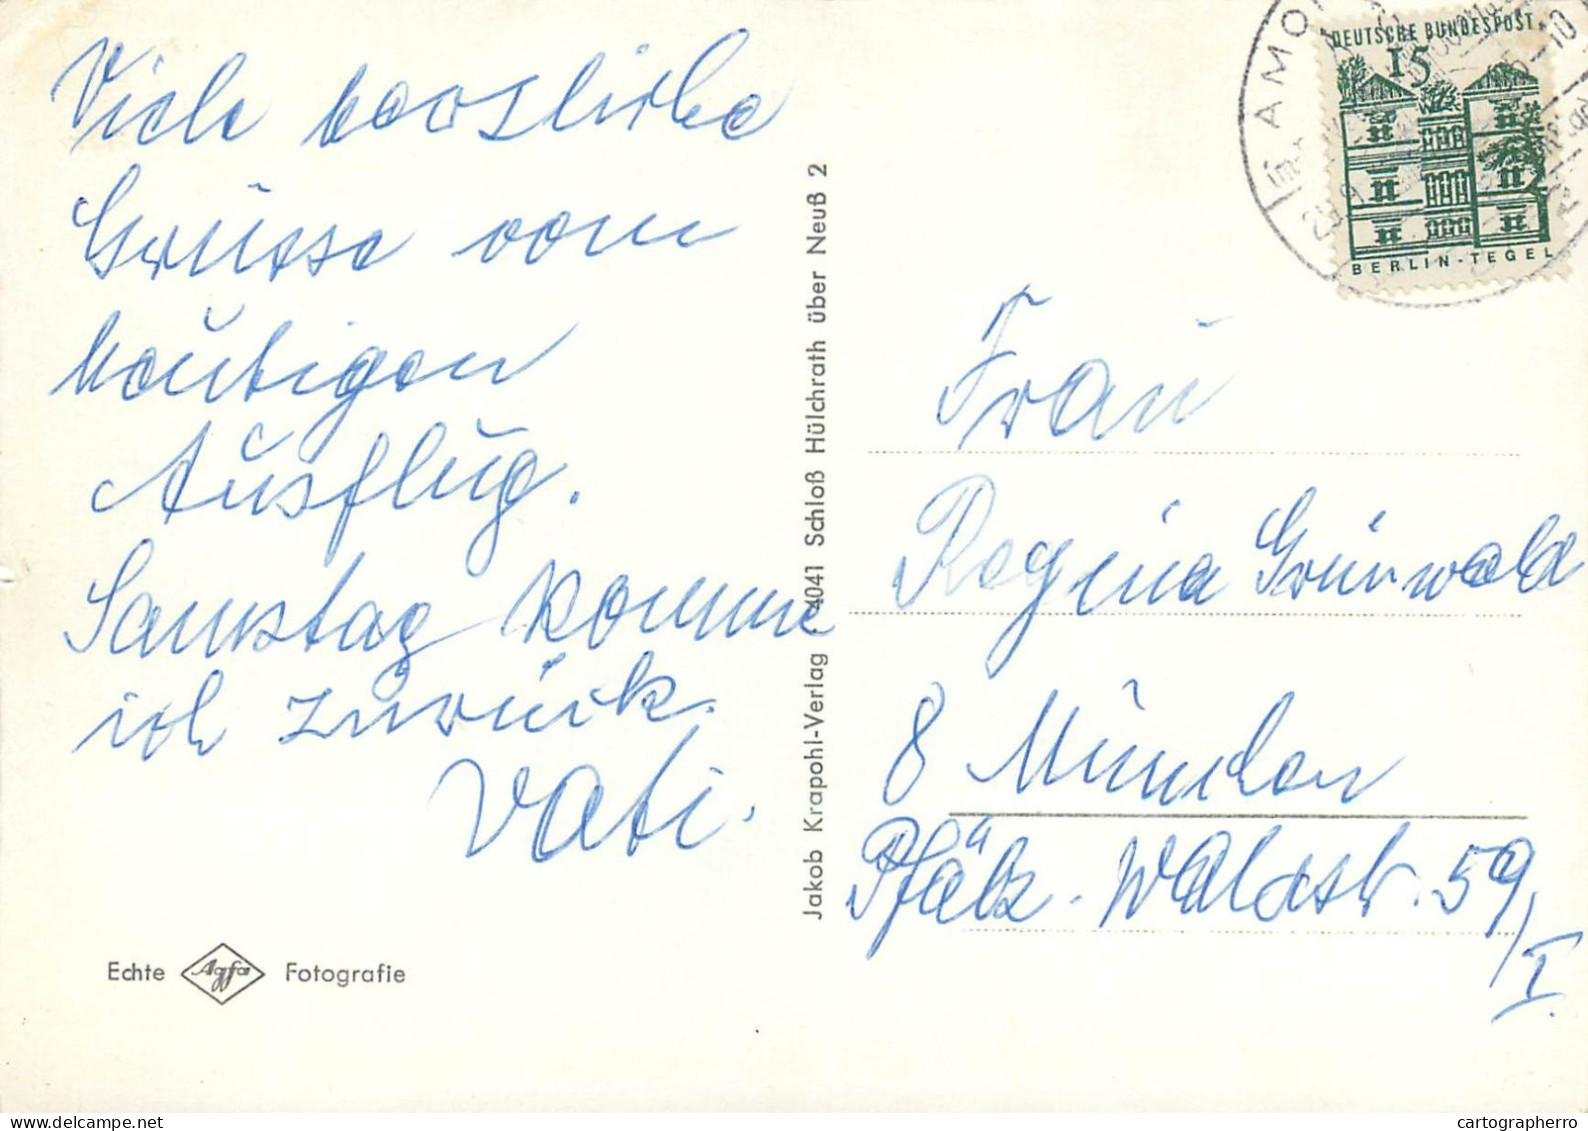 Viele herzliche
Grüsse vom
heutigen
Ausflug.
Samstag komme
ich zurück.
Vati.
Echte Agfa Fotografie
Jakob Krapohl-Verlag 4041 Schloß Hülchrath über Neuß 2
AMO
DEUTSCHE BUNDESPOST
15
BERLIN-TEGEL
Frau
Regina Grünwald
8 München
Pfälz. Waldstr. 59/
I.
www.delcampe.net
cartographerro